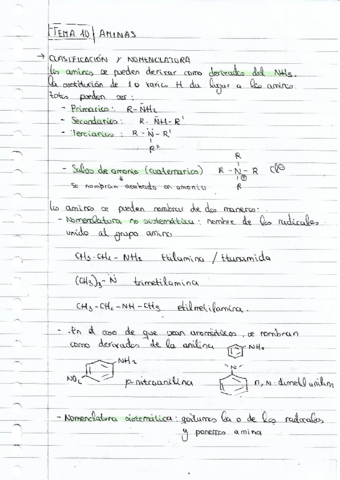 TEMA 10 | AMINAS
→ CLASIFICACIÓN Y NOMENCLATURA
Las aminas se pueden derivar como derivados del NH3.
la sustitución de 1 o varios H da lugar a las aminas.
Estas pueden ser:
- Primarias: R-NH2
- Secundarias: R-NH-R'
- Terciarias: R-N-R'
R''
- Sales de amonio (cuaternarias)
R
R-N-R Cl⊖
⊕
R
Se nombran acabado en amonio
Las aminas se pueden nombrar de dos maneras:
- Nomenclatura no sistemática: nombre de los radicales
unido al grupo amino
CH3-CH2-NH2 etilamina / etanamida
(CH3)3-N trimetilamina
CH3-CH2-NH-CH3 etilmetilamina.
- En el caso de que sean aromáticos, se nombran
como derivados de la anilina
NH2
NH2
NO2
p-nitroanilina
N
n,n-dimetilanilina
- Nomenclatura sistemática: quitamos la o de los radicales
y ponemos amina